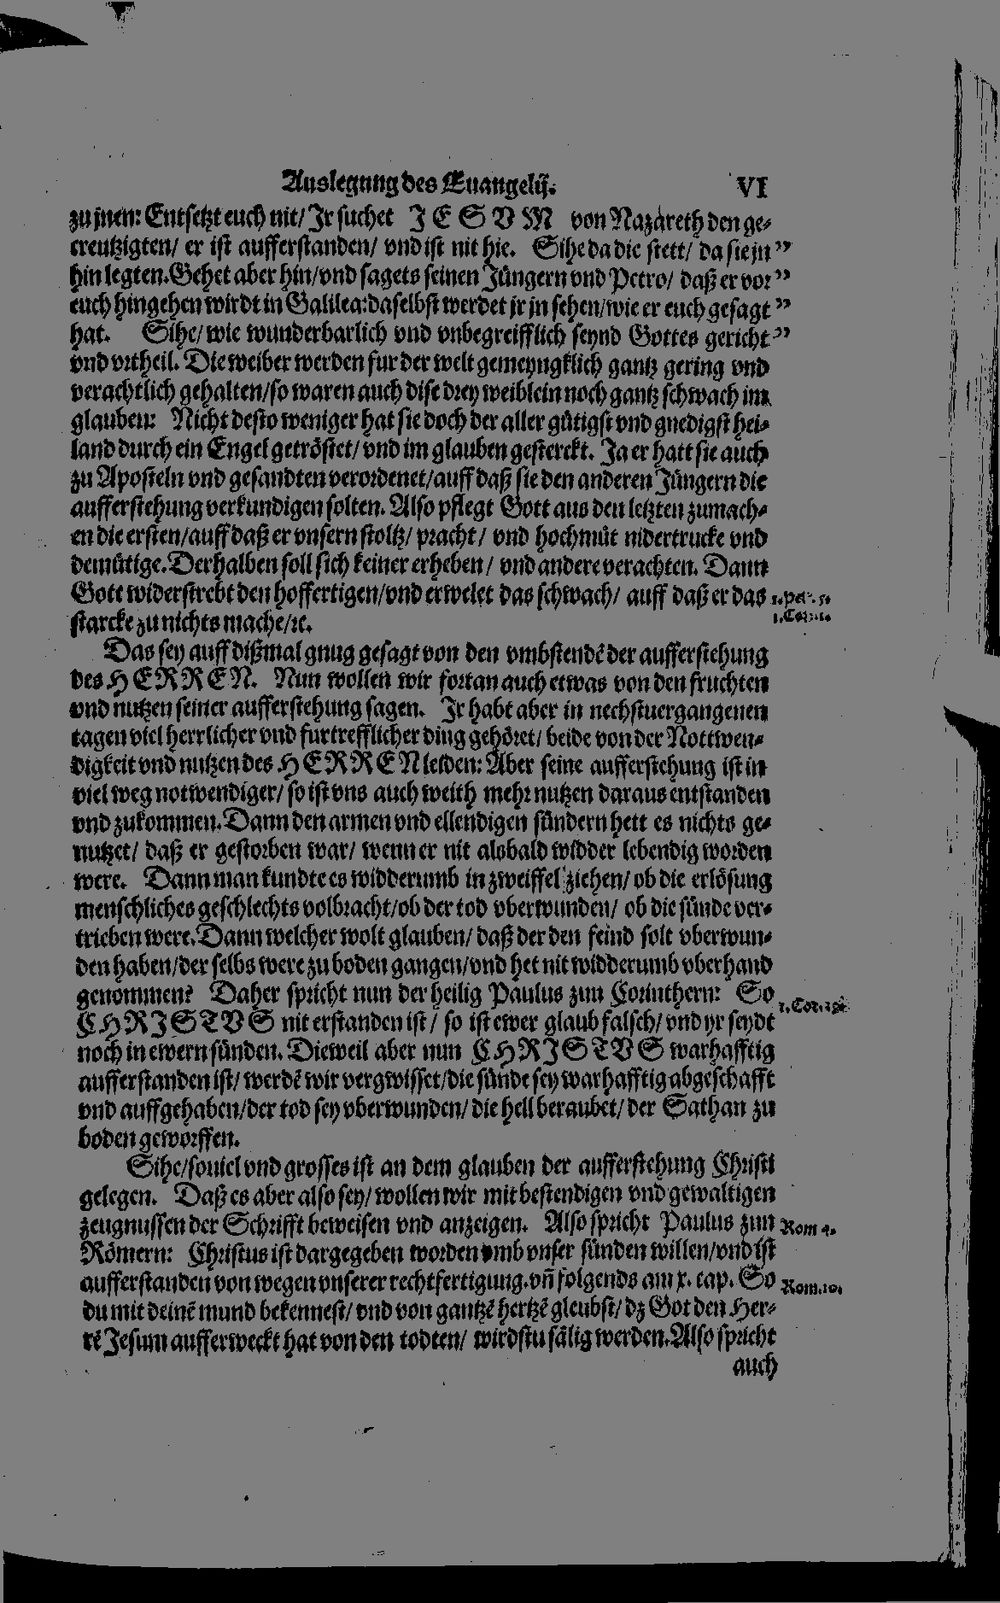 Auslegung des Euangelij. VI
zu jnen: Entsetzt euch nit/ Jr suchet JESVM von Nazareth den ge-
creutzigten/ er ist aufferstanden/ vnd ist nit hie. Sihe da die stett/ da sie jn "
hin legten. Gehet aber hin/ vnd sagets seinen Jüngern vnd Petro/ daß er vor "
euch hingehen wirdt in Galilea: daselbst werdet jr jn sehen/ wie er euch gesagt "
hat. Sihe/ wie wunderbarlich vnd vnbegreifflich seynd Gottes gericht "
vnd vrtheil. Die weiber werden fur der welt gemeyngklich gantz gering vnd
verachtlich gehalten/ so waren auch dise drey weiblein noch gantz schwach im
glauben: Nicht desto weniger hat sie doch der aller gütigst vnd gnedigst hei-
land durch ein Engel getröstet/ vnd im glauben gesterckt. Ja er hatt sie auch
zu Aposteln vnd gesandten verordenet/ auff daß sie den anderen Jüngern die
aufferstehung verkundigen solten. Also pflegt Gott aus den letzten zumach-
en die ersten/ auff daß er vnsern stoltz/ pracht/ vnd hochmüt nidertrucke vnd
demütige. Derhalben soll sich keiner erheben/ vnd andere verachten. Dann
Gott widerstrebt den hoffertigen/ vnd erwelet das schwach/ auff daß er das 1. Pet. 5.
starcke zu nichts mache/ ꝛc. 1. Cor. 1.
Das sey auff dißmal gnug gesagt von den vmbstendē der aufferstehung
des HERREN. Nun wollen wir fortan auch etwas von den fruchten
vnd nutzen seiner aufferstehung sagen. Jr habt aber in nechstuergangenen
tagen viel herrlicher vnd furtrefflicher ding gehöret/ beide von der Nottwen-
digkeit vnd nutzen des HERREN leiden: Aber seine aufferstehung ist in
viel weg notwendiger/ so ist vns auch weith mehr nutzen daraus entstanden
vnd zukommen. Dann den armen vnd ellendigen sündern hett es nichts ge-
nutzet/ daß er gestorben war/ wenn er nit alsbald widder lebendig worden
were. Dann man kundte es widderumb in zweiffel ziehen/ ob die erlösung
menschliches geschlechts volbracht/ ob der tod vberwunden/ ob die sünde ver-
trieben were. Dann welcher wolt glauben/ daß der den feind solt vberwun-
den haben/ der selbs were zu boden gangen/ vnd het nit widderumb vberhand
genommen? Daher spricht nun der heilig Paulus zun Corinthern: So 1. Cor.
CHRISTVS nit erstanden ist/ so ist ewer glaub falsch/ vnd yr seydt
noch in ewern sünden. Dieweil aber nun CHRISTVS warhafftig
aufferstanden ist/ werdē wir vergwisset/ die sünde sey warhafftig abgeschafft
vnd auffgehaben/ der tod sey vberwunden/ die hell beraubet/ der Sathan zu
boden geworffen.
Sihe/ souiel vnd grosses ist an dem glauben der aufferstehung Christi
gelegen. Daß es aber also sey/ wollen wir mit bestendigen vnd gewaltigen
zeugnussen der Schrifft beweisen vnd anzeigen. Also spricht Paulus zun Rom 4.
Römern: Christus ist dargegeben worden vmb vnser sünden willen/ vnd ist
aufferstanden von wegen vnserer rechtfertigung. vñ folgends am x. cap. So Rom. 10.
du mit deinē mund bekennest/ vnd von gantzē hertzē gleubst/ dz Got den Her-
rē Jesum aufferweckt hat von den todten/ wirdstu sälig werden. Also spricht
auch